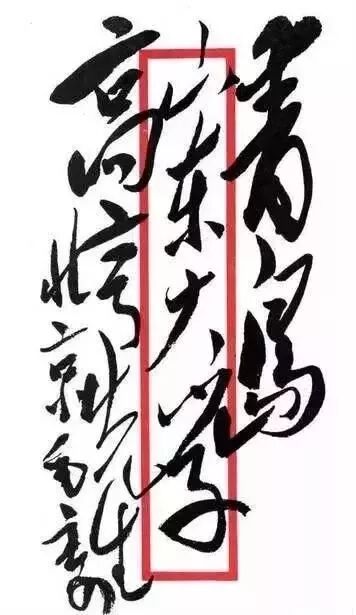 青岛
山东大学
高亨先生
北京毛